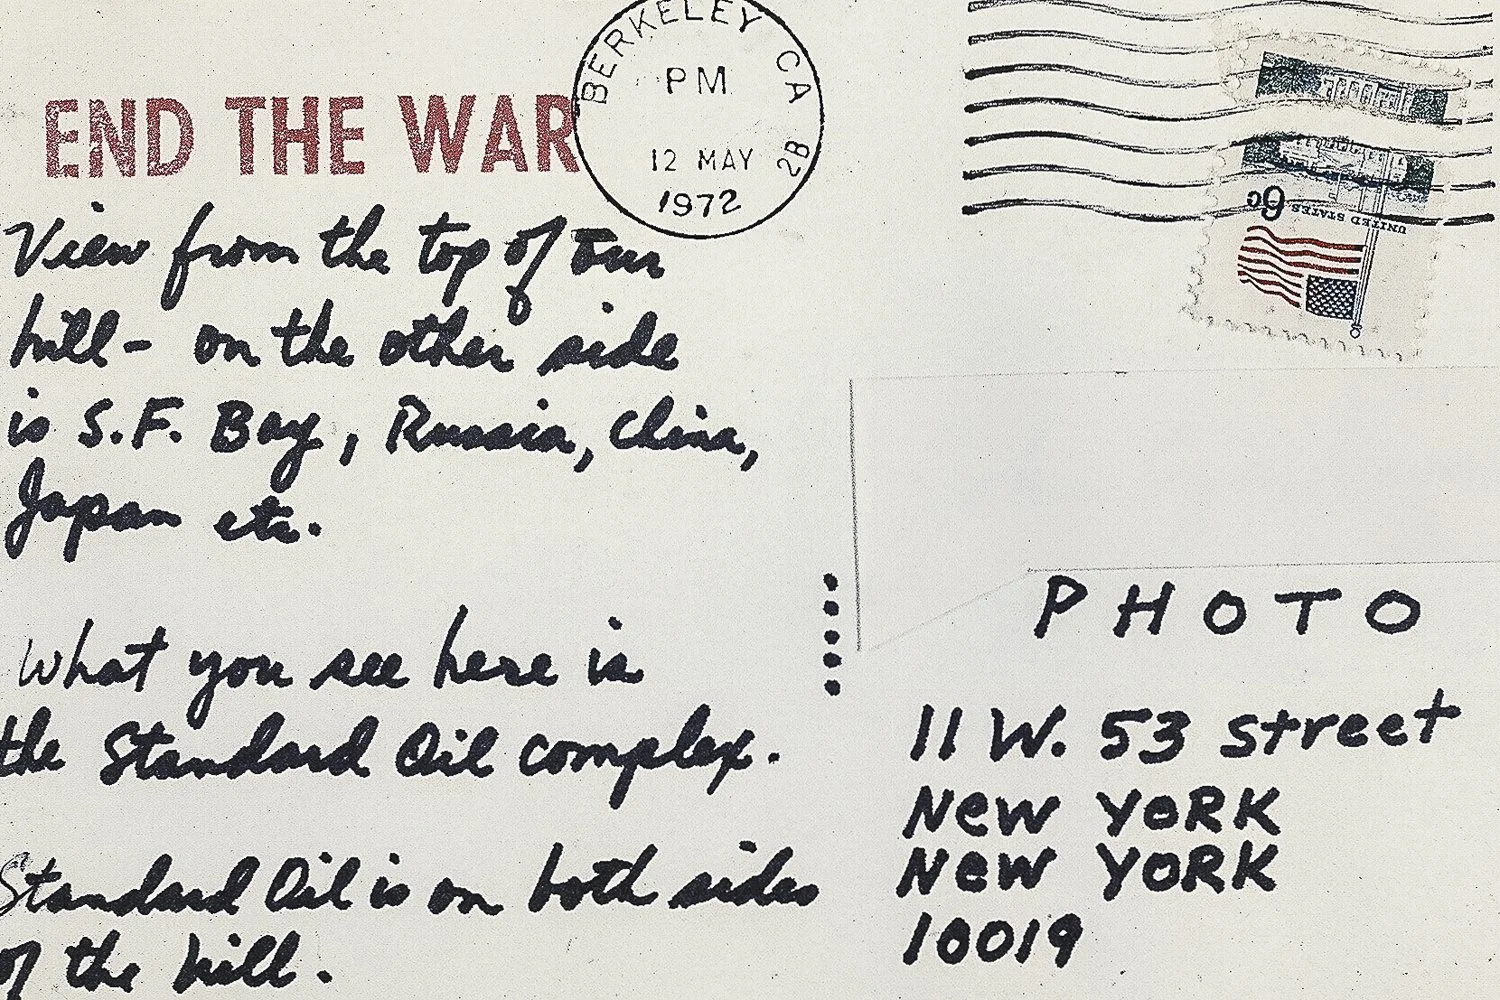 END THE WAR
BERKELEY CA
PM
12 MAY
2B
1972
6c UNITED STATES
View from the top of our
hill - on the other side
is S.F. Bay, Russia, China,
Japan etc.
What you see here is
the Standard Oil complex.
Standard Oil is on both sides
of the hill.
PHOTO
11 W. 53 street
New YORK
New YORK
10019